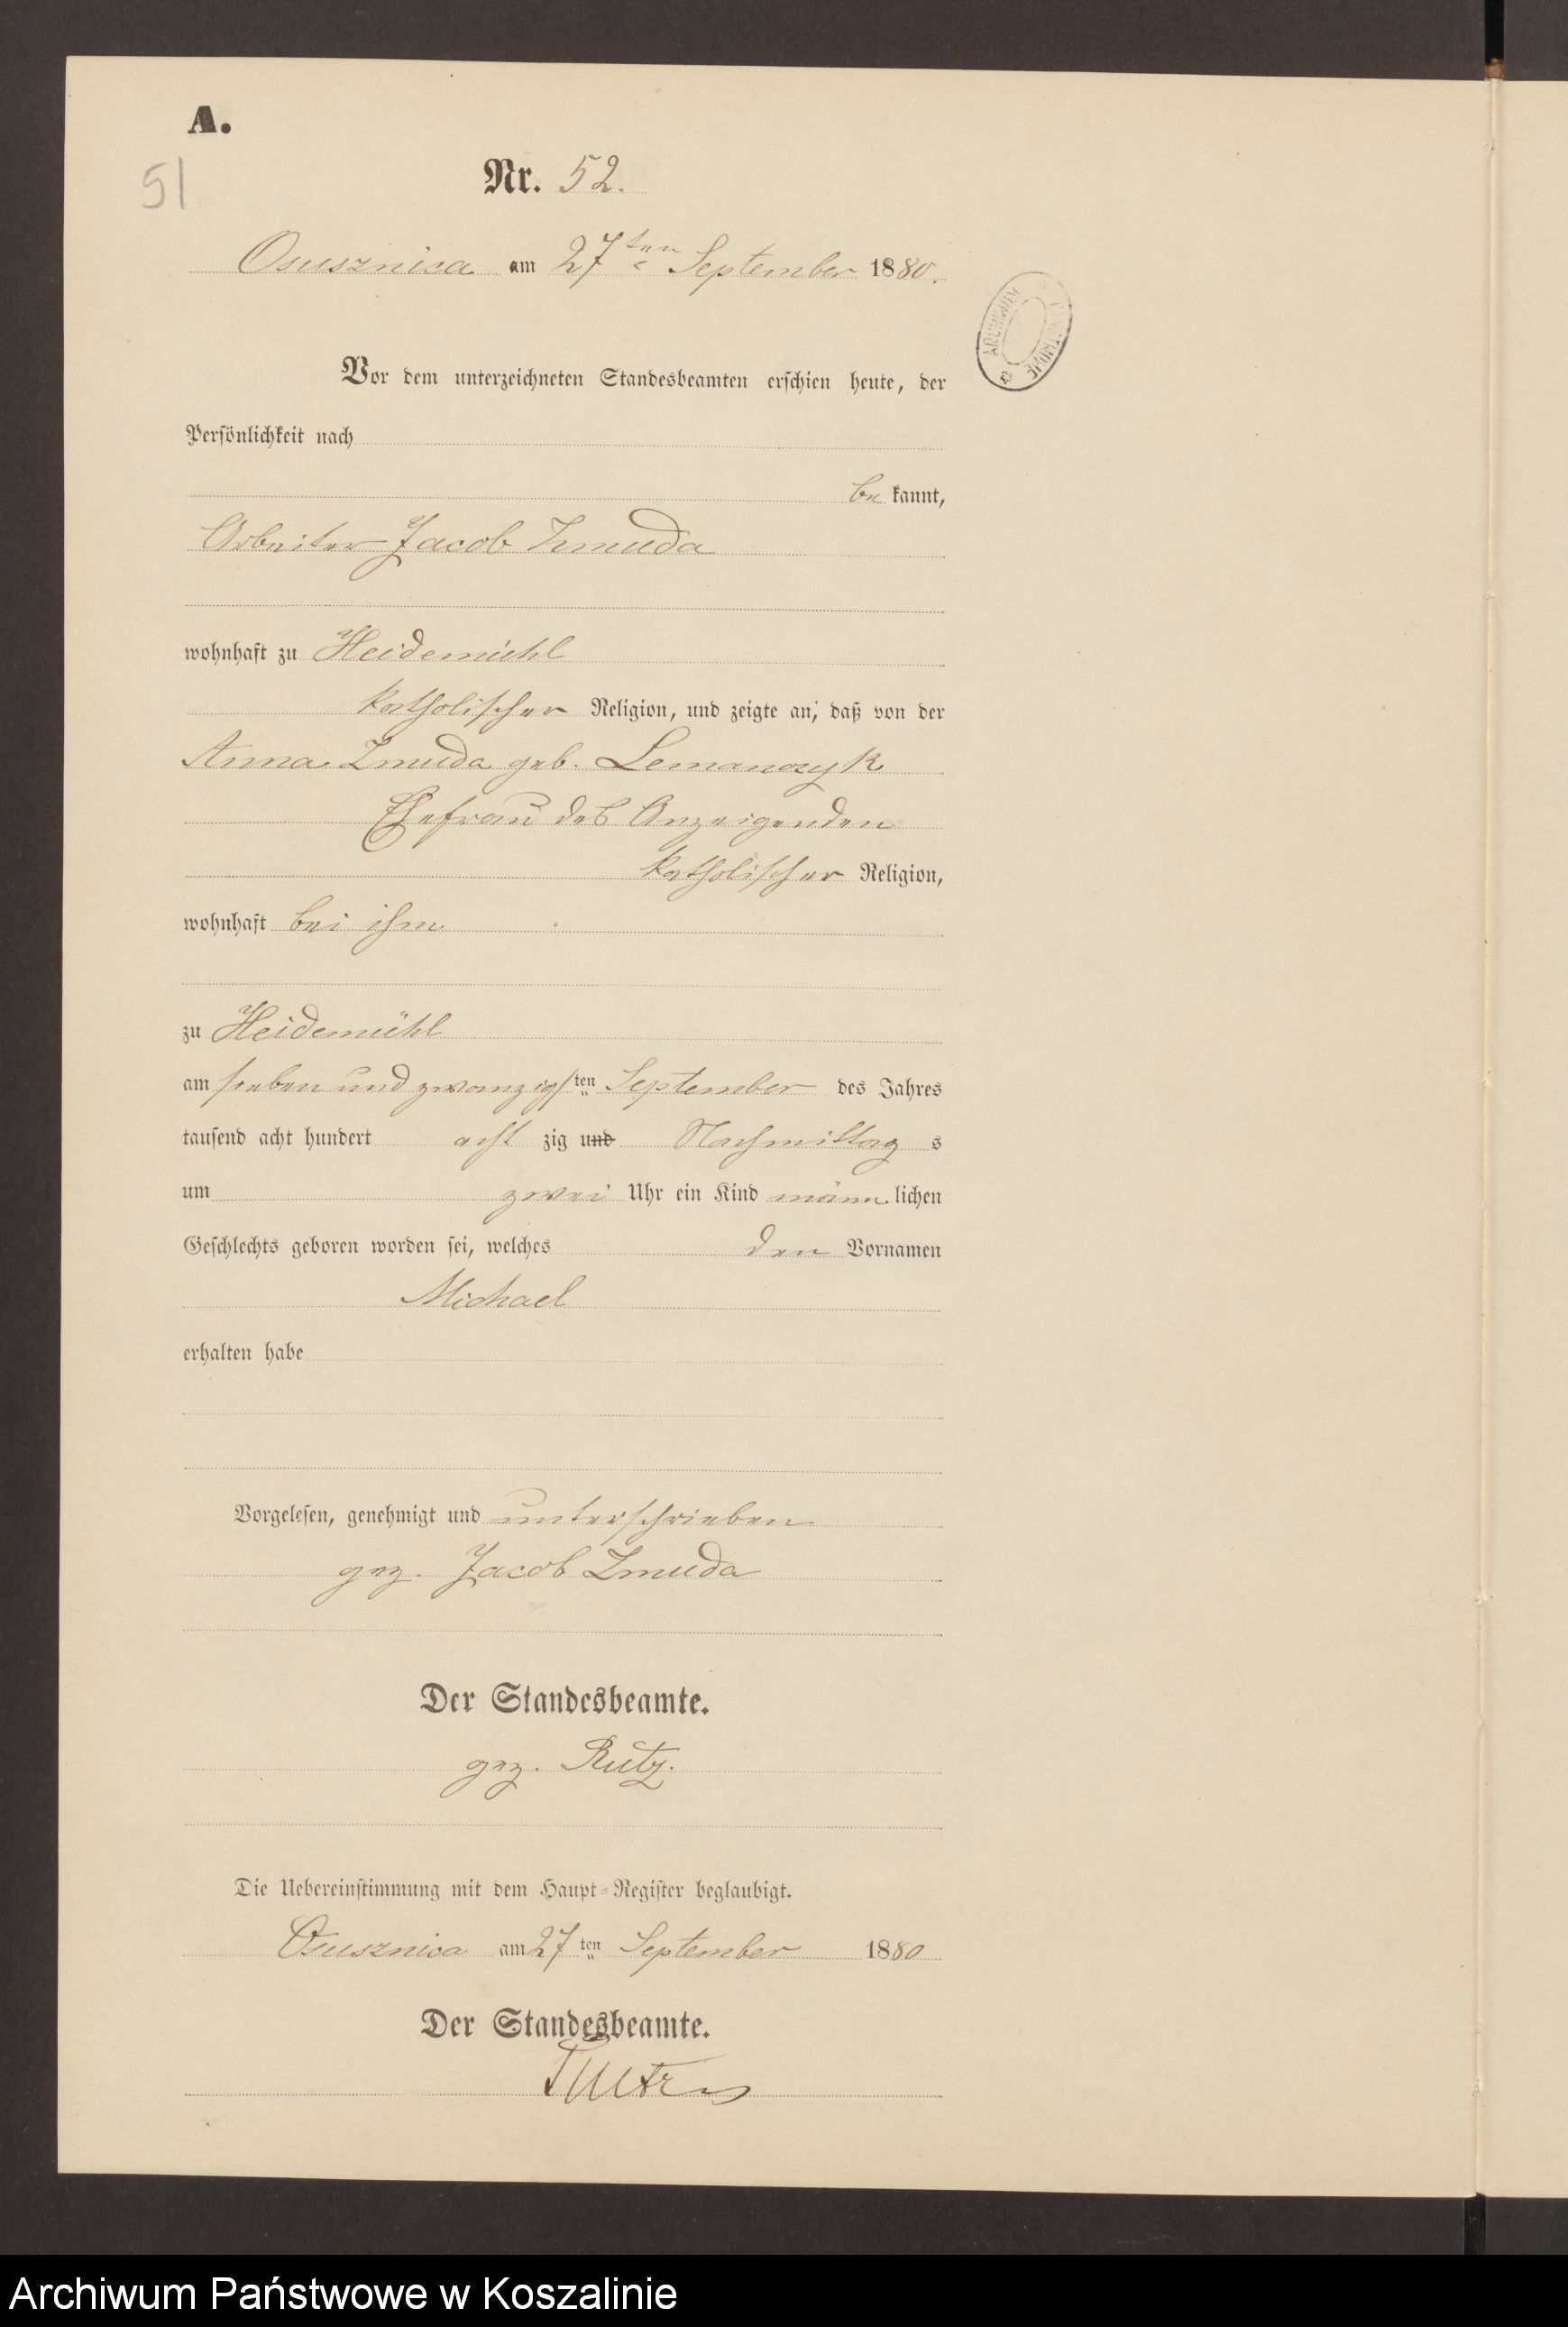 A.
51
Nr. 52.
Osusznica am 27ten September 1880.
ARCHIWUM
Vor dem unterzeichneten Standesbeamten erschien heute, der
Persönlichkeit nach
be kannt,
Arbeiter Jacob Zmuda
wohnhaft zu Heidemühl
katholischer Religion, und zeigte an, daß von der
Anna Zmuda geb. Lemanczyk
Ehefrau des Anzeigenden
katholischer Religion,
wohnhaft bei ihm
zu Heidemühl
am sieben und zwanzigsten September des Jahres
tausend acht hundert acht zig und Nachmittag s
um zwei Uhr ein Kind männlichen
Geschlechts geboren worden sei, welches den Vornamen
Michael
erhalten habe
Vorgelesen, genehmigt und unterschrieben
gez. Jacob Zmuda
Der Standesbeamte.
gez. Rutz.
Die Uebereinstimmung mit dem Haupt-Register beglaubigt.
Osusznica am 27ten September 1880
Der Standesbeamte.
Archiwum Państwowe w Koszalinie